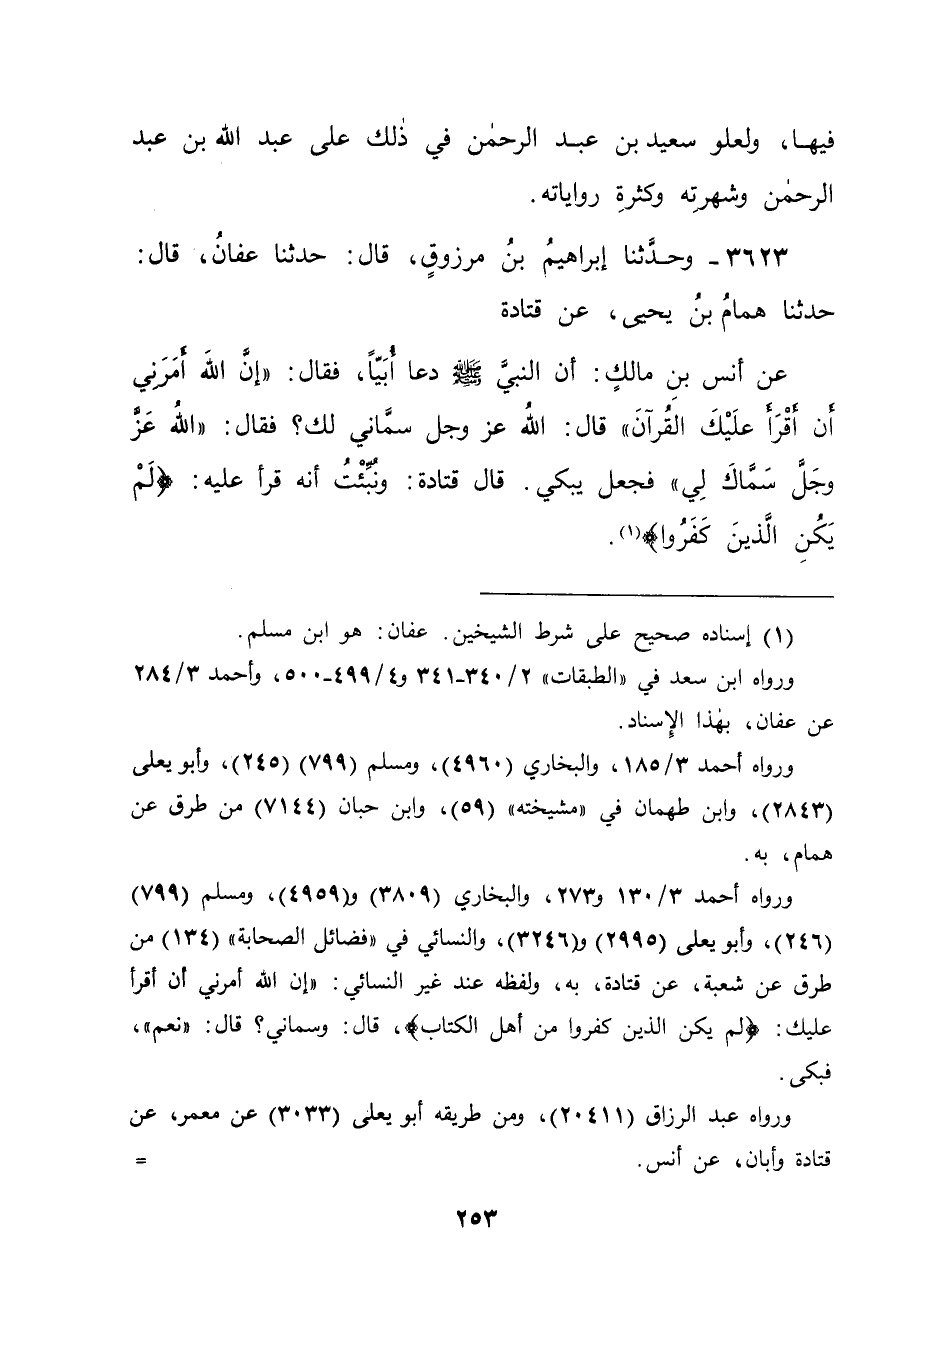 فيهـا، ولعلو سعيد بن عبـد الرحمٰن في ذٰلك على عبد الله بن عبد
الرحمٰن وشهرتِه وكثرةِ رواياته.
٣٦٢٣ ـ وحـدَّثنا إبراهيمُ بنُ مرزوقٍ، قال: حدثنا عفانُ، قال:
حدثنا همامُ بنُ يحيى، عن قتادة
عن أنس بنِ مالكٍ: أن النبيَّ ﷺ دعا أُبَيّاً، فقال: «إنَّ اللهَ أَمَرَني
أَن أَقْرَأَ علَيْكَ القُرآنَ» قال: اللهُ عز وجل سمَّاني لك؟ فقال: «اللهُ عَزَّ
وجَلَّ سَمَّاكَ لِي» فجعل يبكي. قال قتادة: ونُبِّئْتُ أنه قرأ عليه: ﴿لَمْ
يَكُنِ الَّذينَ كَفَرُوا﴾(١).
(١) إسناده صحيح على شرط الشيخين. عفان: هو ابن مسلم.
ورواه ابن سعد في «الطبقات» ٢/ ٣٤٠ـ٣٤١ و٤/ ٤٩٩ـ٥٠٠، وأحمد ٣/ ٢٨٤
عن عفان، بهٰذا الإسناد.
ورواه أحمد ٣/ ١٨٥، والبخاري (٤٩٦٠)، ومسلم (٧٩٩) (٢٤٥)، وأبو يعلى
(٢٨٤٣)، وابن طهمان في «مشيخته» (٥٩)، وابن حبان (٧١٤٤) من طرق عن
همام، به.
ورواه أحمد ٣/ ١٣٠ و٢٧٣، والبخاري (٣٨٠٩) و(٤٩٥٩)، ومسلم (٧٩٩)
(٢٤٦)، وأبو يعلى (٢٩٩٥) و(٣٢٤٦)، والنسائي في «فضائل الصحابة» (١٣٤) من
طرق عن شعبة، عن قتادة، به، ولفظه عند غير النسائي: «إن الله أمرني أن أقرأ
عليك: ﴿لم يكن الذين كفروا من أهل الكتاب﴾، قال: وسماني؟ قال: «نعم»،
فبكى.
ورواه عبد الرزاق (٢٠٤١١)، ومن طريقه أبو يعلى (٣٠٣٣) عن معمر، عن
قتادة وأبان، عن أنس. =
٢٥٣